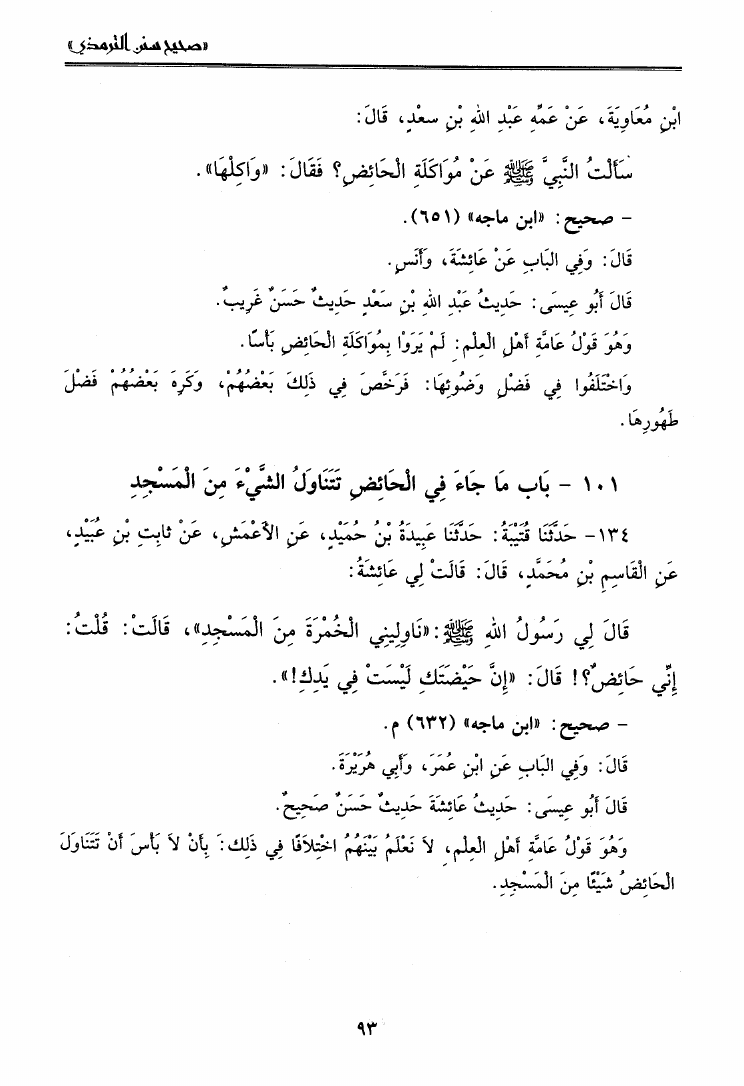 «صحيح سنن الترمذي»
ابْنِ مُعَاوِيَةَ، عَنْ عَمِّهِ عَبْدِ اللهِ بْنِ سعْدٍ، قَالَ:
سَأَلْتُ النَّبِيَّ ﷺ عَنْ مُوَاكَلَةِ الْحَائِضِ؟ فَقَالَ: «وَاكِلْهَا».
- صحيح: «ابن ماجه» (٦٥١).
قَالَ: وَفِي البَابِ عَنْ عَائِشَةَ، وَأَنَسٍ.
قَالَ أَبُو عِيسَى: حَدِيثُ عَبْدِ اللهِ بْنِ سَعْدٍ حَدِيثٌ حَسَنٌ غَرِيبٌ.
وَهُوَ قَوْلُ عَامَّةِ أَهْلِ العِلْمِ: لَمْ يَرَوْا بِمُوَاكَلَةِ الْحَائِضِ بَأْسًا.
وَاخْتَلَفُوا فِي فَضْلِ وَضُوئِهَا: فَرَخَّصَ فِي ذَلِكَ بَعْضُهُمْ، وَكَرِهَ بَعْضُهُمْ فَضْلَ
طَهُورِهَا.
١٠١ - بَاب مَا جَاءَ فِي الْحَائِضِ تَتَنَاوَلُ الشَّيْءَ مِنَ الْمَسْجِدِ
١٣٤- حَدَّثَنَا قُتَيْبَةُ: حَدَّثَنَا عَبِيدَةُ بْنُ حُمَيْدٍ، عَنِ الأَعْمَشِ، عَنْ ثَابِتِ بْنِ عُبَيْدٍ،
عَنِ الْقَاسِمِ بْنِ مُحَمَّدٍ، قَالَ: قَالَتْ لِي عَائِشَةُ:
قَالَ لِي رَسُولُ اللهِ ﷺ: «نَاوِلِينِي الْخُمْرَةَ مِنَ الْمَسْجِدِ»، قَالَتْ: قُلْتُ:
إِنِّي حَائِضٌ؟! قَالَ: «إِنَّ حَيْضَتَكِ لَيْسَتْ فِي يَدِكِ!».
- صحيح: «ابن ماجه» (٦٣٢) م.
قَالَ: وَفِي البَابِ عَنِ ابْنِ عُمَرَ، وَأَبِي هُرَيْرَةَ.
قَالَ أَبُو عِيسَى: حَدِيثُ عَائِشَةَ حَدِيثٌ حَسَنٌ صَحِيحٌ.
وَهُوَ قَوْلُ عَامَّةِ أَهْلِ العِلْمِ، لاَ نَعْلَمُ بَيْنَهُمُ اخْتِلاَفًا فِي ذَلِكَ: بِأَنْ لاَ بَأْسَ أَنْ تَتَنَاوَلَ
الْحَائِضُ شَيْئًا مِنَ الْمَسْجِدِ.
٩٣